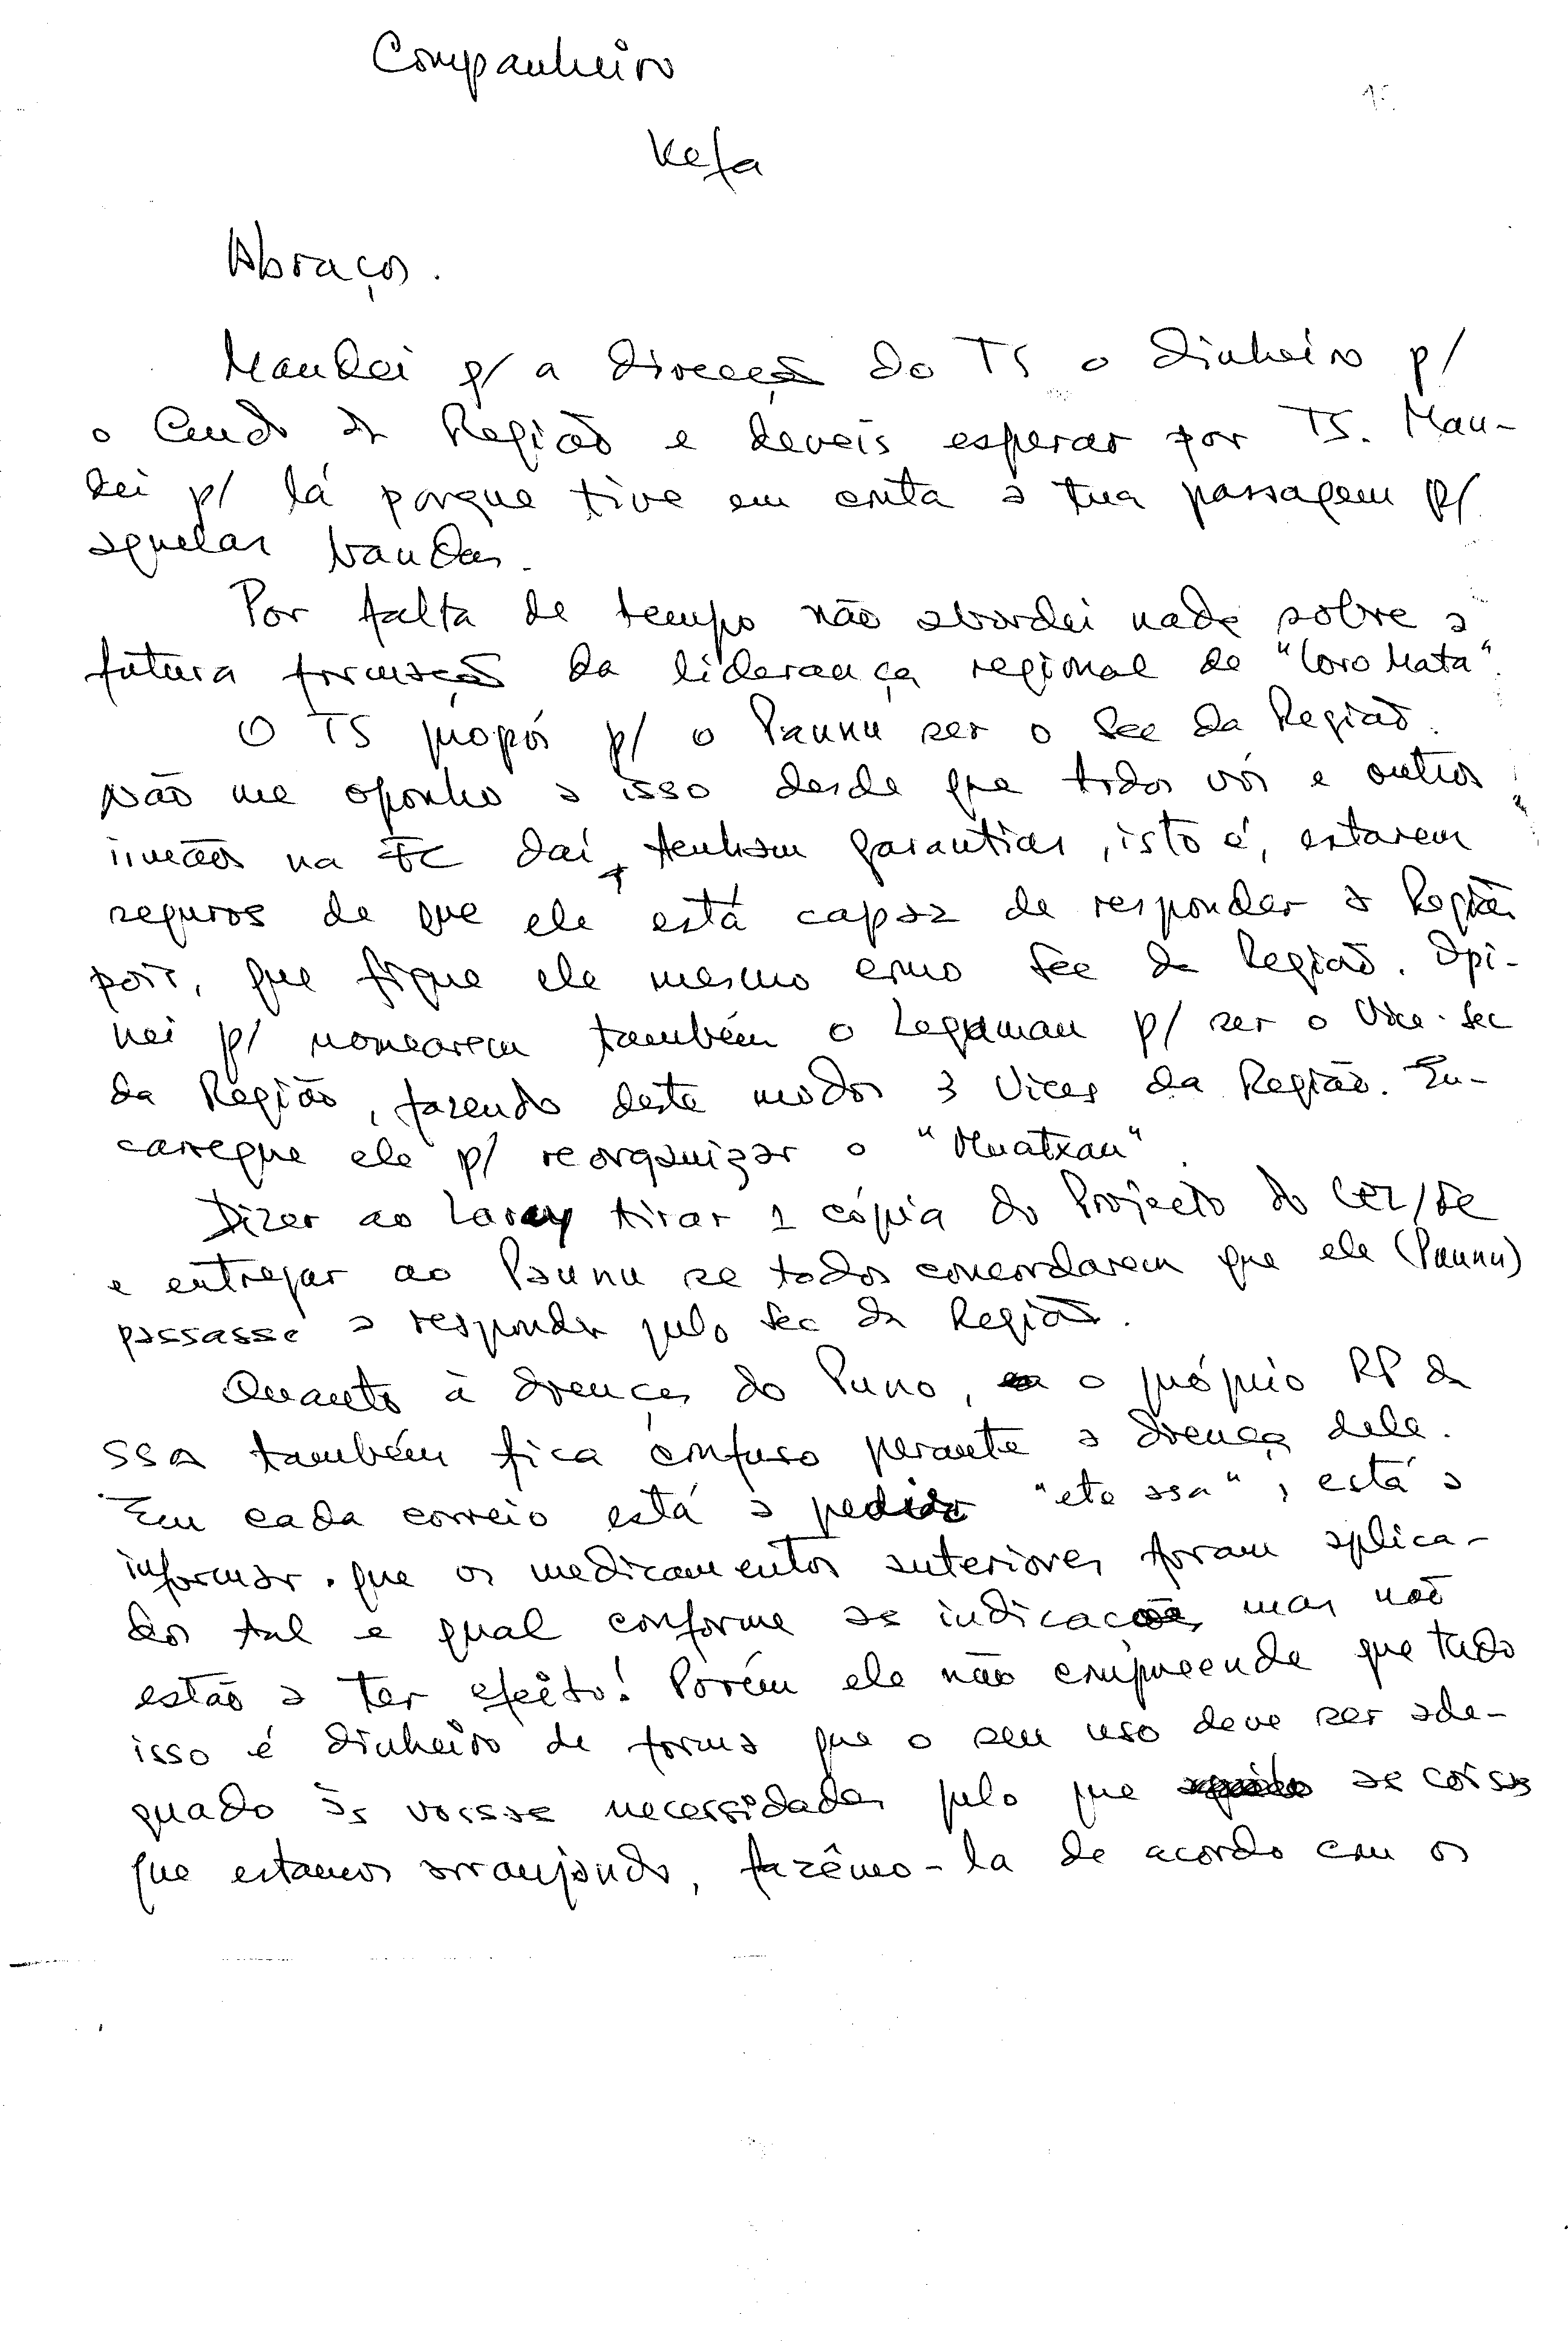 Companheiro
Kefa
Abraços.
Mandei p/ a direcção do TS o dinheiro p/
o Cmdo da Região e deveis esperar por TS. Man-
dei p/ lá porque tive em conta a tua passagem p/
aquelas bandas.
Por falta de tempo não abordei nada sobre a
futura formação da liderança regional de "Loro Mata".
O TS propôs p/ o Paunu ser o Sec da Região.
Não me oponho a isso desde que todos vós e outros
irmãos na FC daí, tenham garantias, isto é, estarem
seguros de que ele está capaz de responder a Região
pois, que fique ele mesmo como Sec da Região. Opi-
nei p/ nomearem também o Legaman p/ ser o Vice-Sec
da Região, fazendo deste modos 3 Vices da Região. En-
carregue ele p/ reorganizar o "Nuatxau".
Dizer ao Laray tirar 1 cópia do Projecto do
e entregar ao Paunu se todos concordarem que ele (Paunu)
passasse a responder pelo Sec da Região.
Quanto à doença do Puno, o próprio RP da
SSA também fica confuso perante a doença dele.
Em cada correio está a pedir "ete asa", está a
informar que os medicamentos anteriores foram aplica-
dos tal e qual conforme as indicações mas não
estão a ter efeito! Porém ele não compreende que tudo
isso é dinheiro de forma que o seu uso deve ser ade-
quado às vossas necessidades pelo que as coisas
que estamos arranjando, fazêmo-la de acordo com os